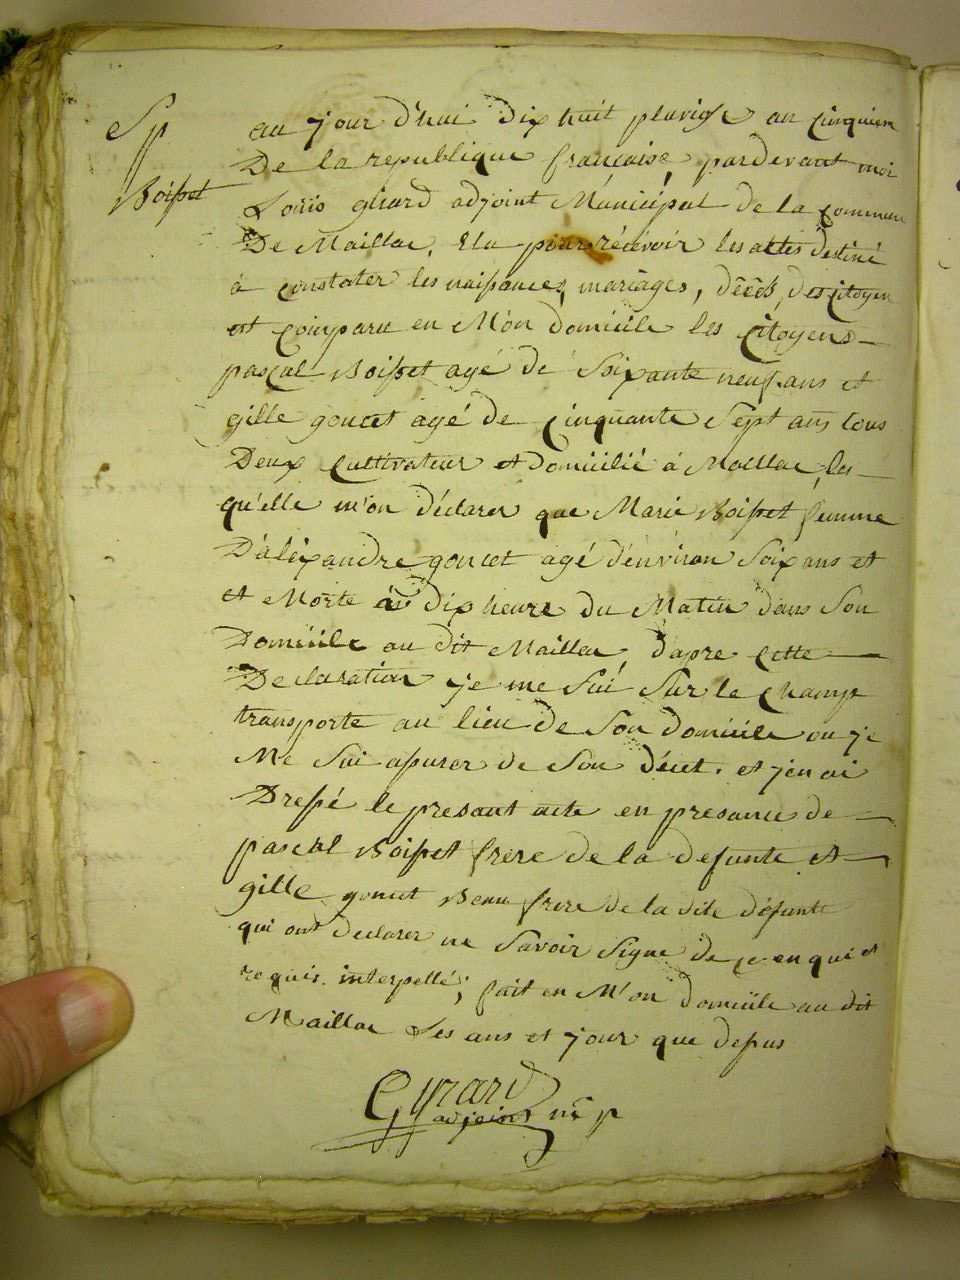 Sp
Boisset
au jour d'hui dix huit pluviose an cinquiem
De la republique francaise, pardevant moi
Louis girard adjoint Municipal de la commun
De Maillac, Elu pour récevoir les actes destiné
à constater les naissances, mariages, décés, des citoyen
est comparu en M'on domicile les citoyens
pascal Boisset agé de soixante neuf ans et
gille goucet agé de cinquante sept ans tous
Deux cultivateur et domicilié à Maillac, les
qu'elle m'on déclarer que Marie Boisset femme
D'aléxandre goucet agé d'énviron soix ans et
et Morte à dix heure du Matin dans son
Domicile au dit Maillac, dapre cette
Declaration je me sui sur le champ
transporte au lieu de son domicile ou je
Me sui assurer de son décet. et j'en ai
Dressé le presant acte en presance de
pascal Boisset frere de la defunte et
gille goucet Beau frere de la dite défunte
qui ont declarer ne savoir signe de ce en qui et
requis. interpellé; fait en M'on domicile au dit
Maillac Les ans et jour que depus
Girard
adjoint mp